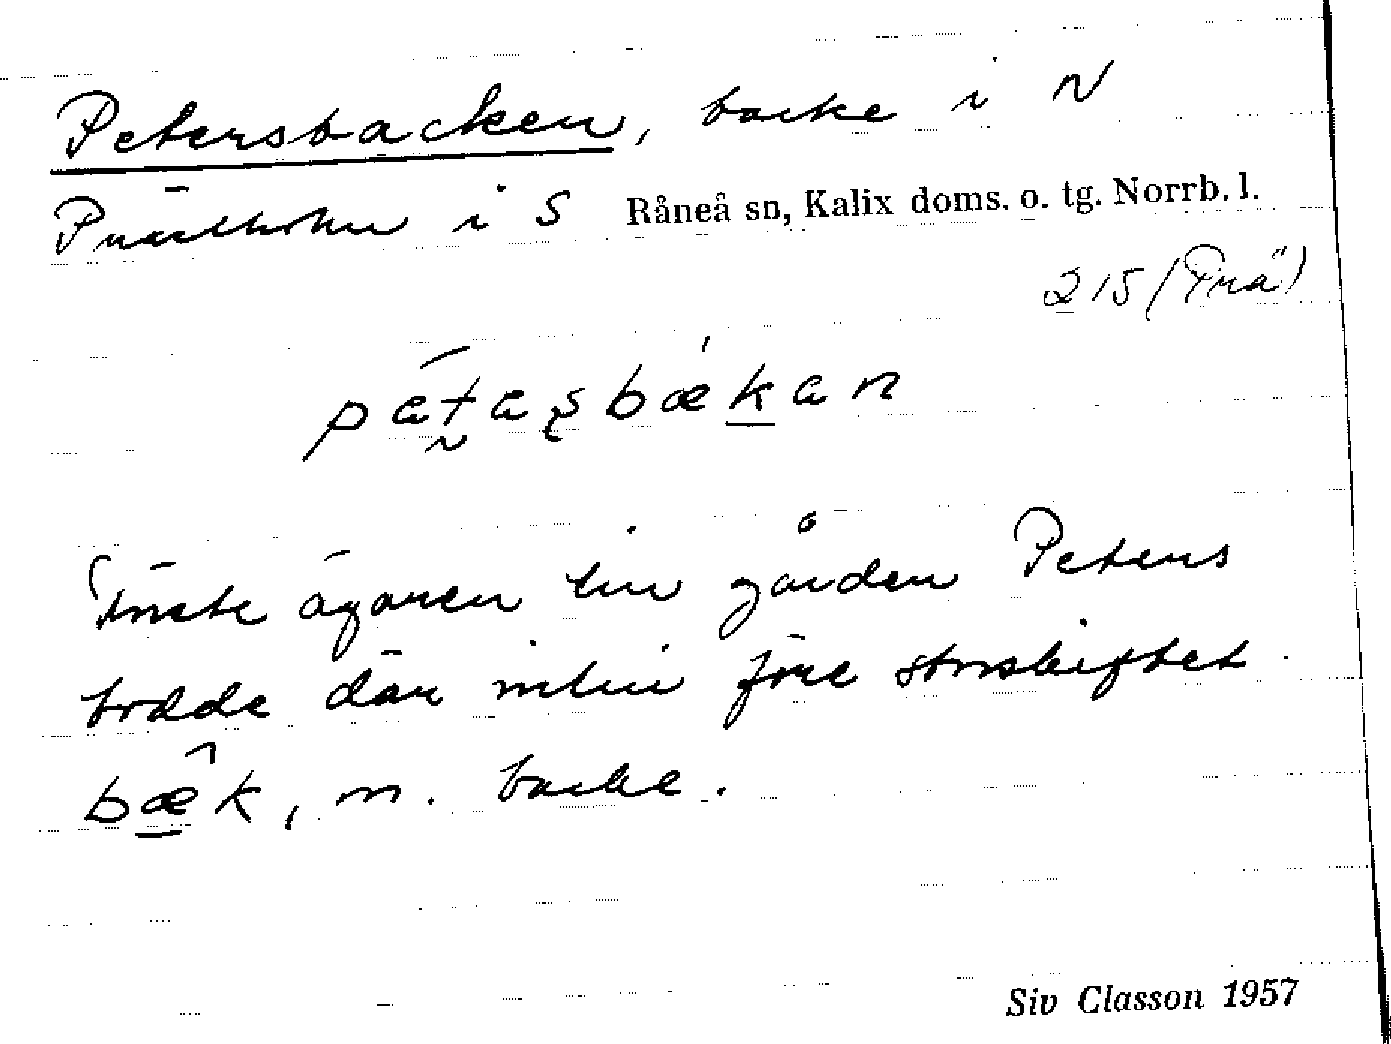 Petersbacken, backe i N
Prästholm i S Råneå sn, Kalix doms. o. tg. Norrb. l.
215 (Prä)
petasbækan
Förste ägaren till gården Peters
bodde där intill före storskiftet
bæk, m. backe.
Siv Classon 1957